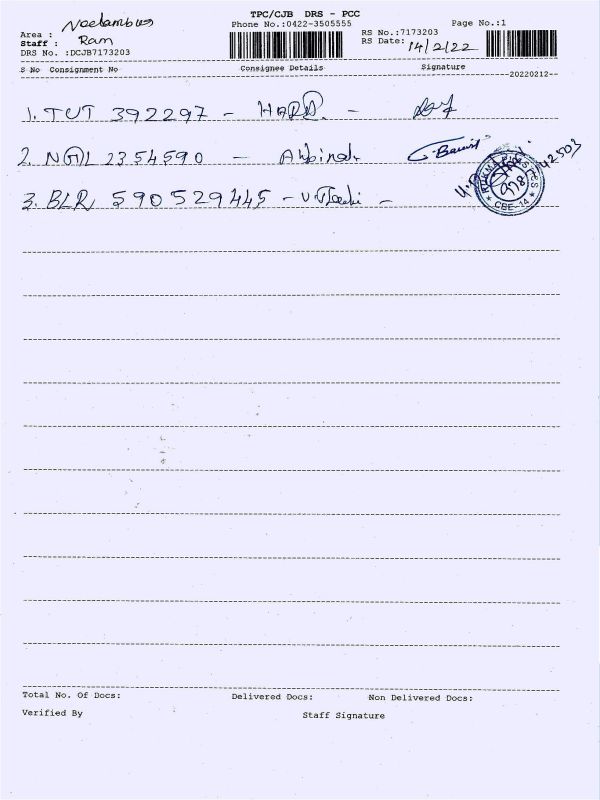 TPC/CJB DRS - PCC
Phone No.:0422-3505555
Page No.:1
Area : Neelambus
Staff : Ram
DRS No. :DCJB7173203
RS No.:7173203
RS Date: 14/2/22
S No Consignment No Consignee Details Signature
20220212
1. TUT 392297 - HARD. -
2. NGL 2354590 -
3. BLR 590529445 -
CBE-14
Total No. Of Docs: Delivered Docs: Non Delivered Docs:
Verified By Staff Signature